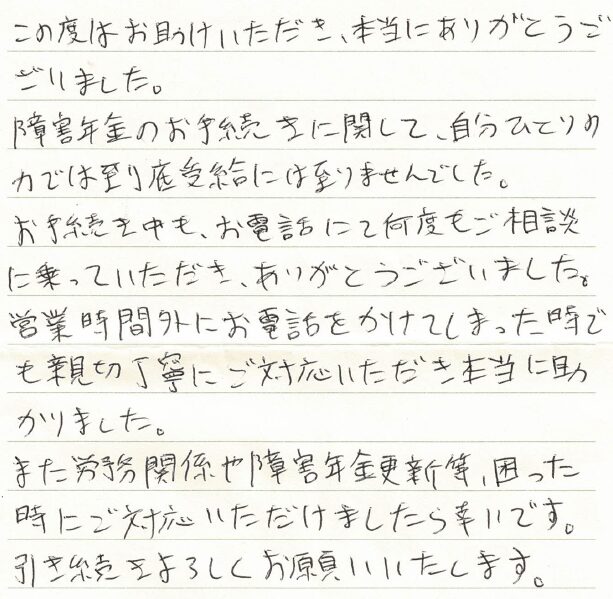 この度はお助けいただき、本当にありがとうご
ざいました。
障害年金のお手続きに関して、自分ひとりの
力では到底受給には至りませんでした。
お手続き中も、お電話にて何度もご相談
に乗っていただき、ありがとうございました。
営業時間外にお電話をかけてしまった時で
も親切丁寧にご対応いただき本当に助
かりました。
また労務関係や障害年金更新等、困った
時にご対応いただけましたら幸いです。
引き続きよろしくお願いいたします。